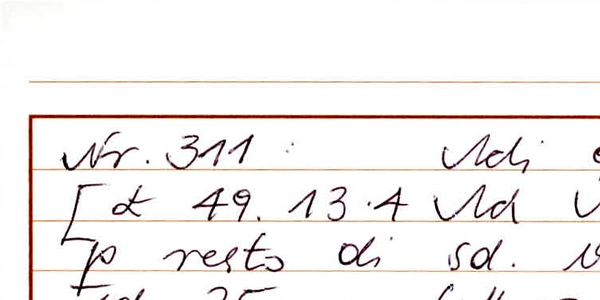 Nr. 311 : Adi
[α 49. 13.4 Ad
p resto di sd.
sd. 25